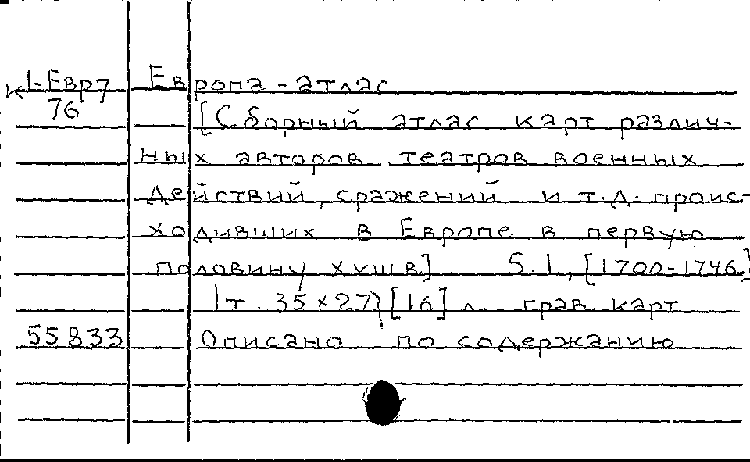 К 1-Евр7 Европа-атлас
76 [Сборный атлас карт различ-
ных авторов театров военных
действий, сражений и т.д. проис-
ходивших в Европе в первую
половину XVIII в] S.l., [1700-1746]
1т. 35×27) [16] л. грав карт
55833 Описано по содержанию